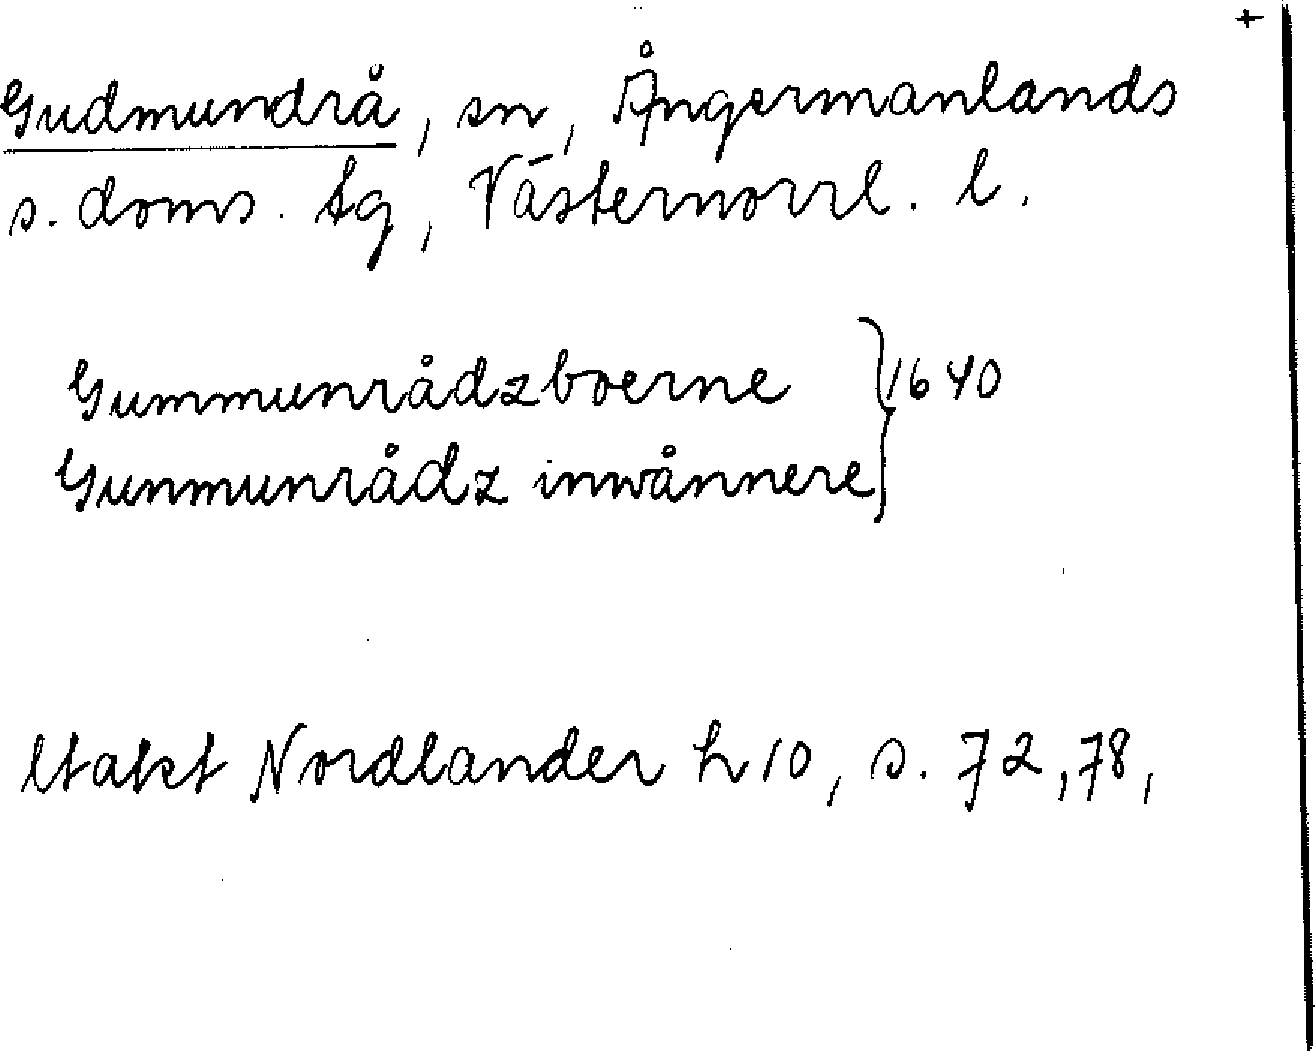 +
Gudmundrå, sn, Ångermanlands
s. doms. tg, Västernorrl. l.
Gummunrådzboerne } 1640
Gunmunrådz inwånnere
Utakt Nordlander h 10, s. 72, 78,